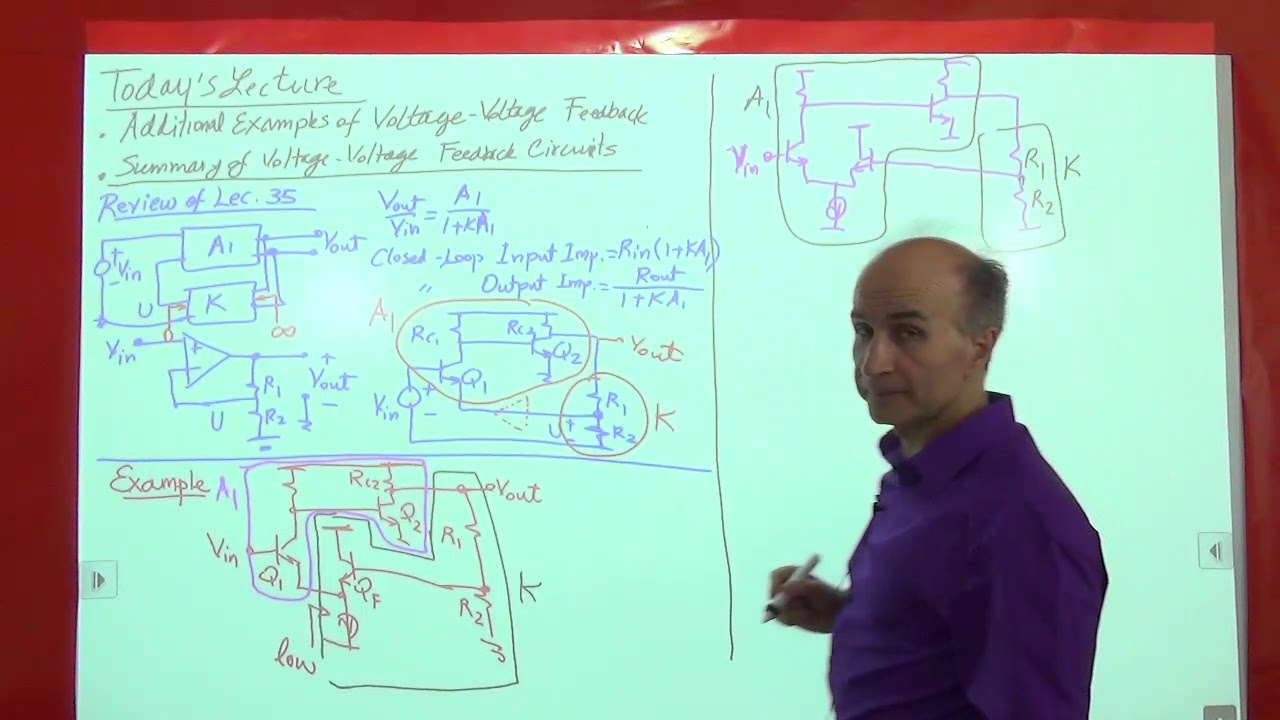 Today's Lecture
. Additional Examples of Voltage-Voltage Feedback
. Summary of Voltage-Voltage Feedback Circuits
Review of Lec. 35
Vout/Vin = A1/1+KA1
Closed-Loop Input Imp. = Rin(1+KA1)
" Output Imp. = Rout/1+KA1
A1
Vout
+
Vin
-
U
K
∞
Vin
+
-
R1
R2
U
+
Vout
-
A1
RC1
RC2
Q1
Q2
Vout
Vin
+
-
R1
R2
U
+
K
Example
A1
RC2
Vout
Q2
R1
Vin
Q1
QF
R2
K
low
A1
Vin
R1
R2
K